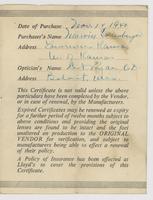 Date of Purchase Nov. 15, 1940
Purchaser's Name Marvin
Address Lawrence Kansas
U. of Kansas
Optician's Name
Address Beloit, Kans.
This Certificate is not valid unless the above
particulars have been completed by the Vendor,
or in case of renewal, by the Manufacturers.
Expired Certificates may be renewed at expiry
for a further period of twelve months subject to
above conditions and providing the original
lenses are found to be intact and the fact
confirmed on production to the ORIGINAL
VENDOR for verification, and subject to the
manufacturers being able to effect a renewal
of their policy.
A Policy of Insurance has been effected at
Lloyd's to cover the provisions of this
Certificate.